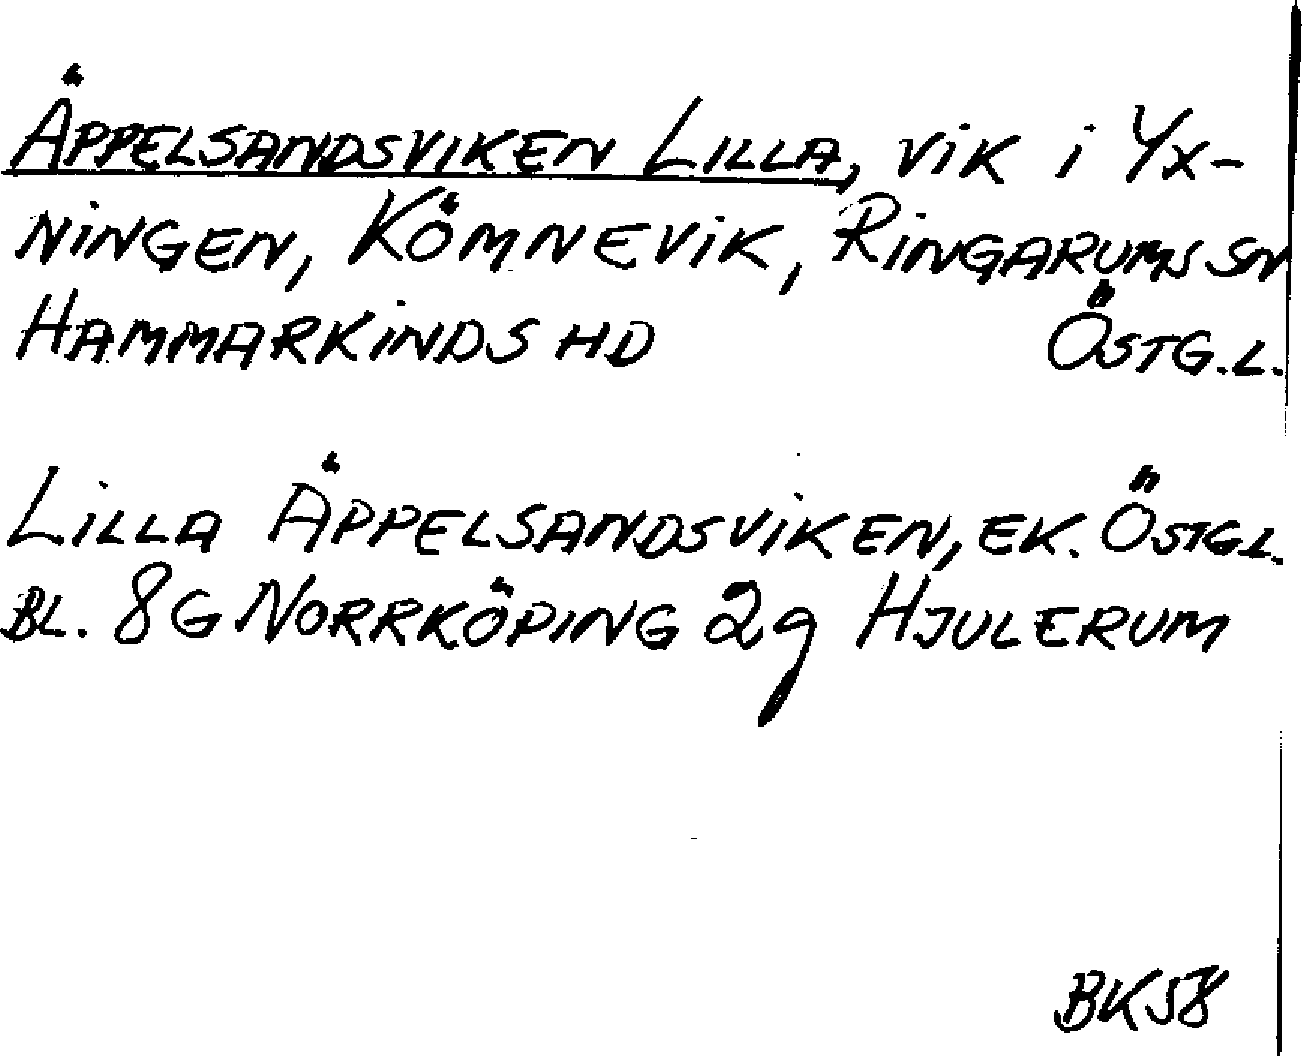 Äppelsandsviken Lilla, vik i Yx-
ningen, Kömnevik, Ringarums sn
Hammarkinds hd Östg.l.
Lilla Äppelsandsviken, ek. Östg.l.
bl. 8G Norrköping 2g Hjulerum